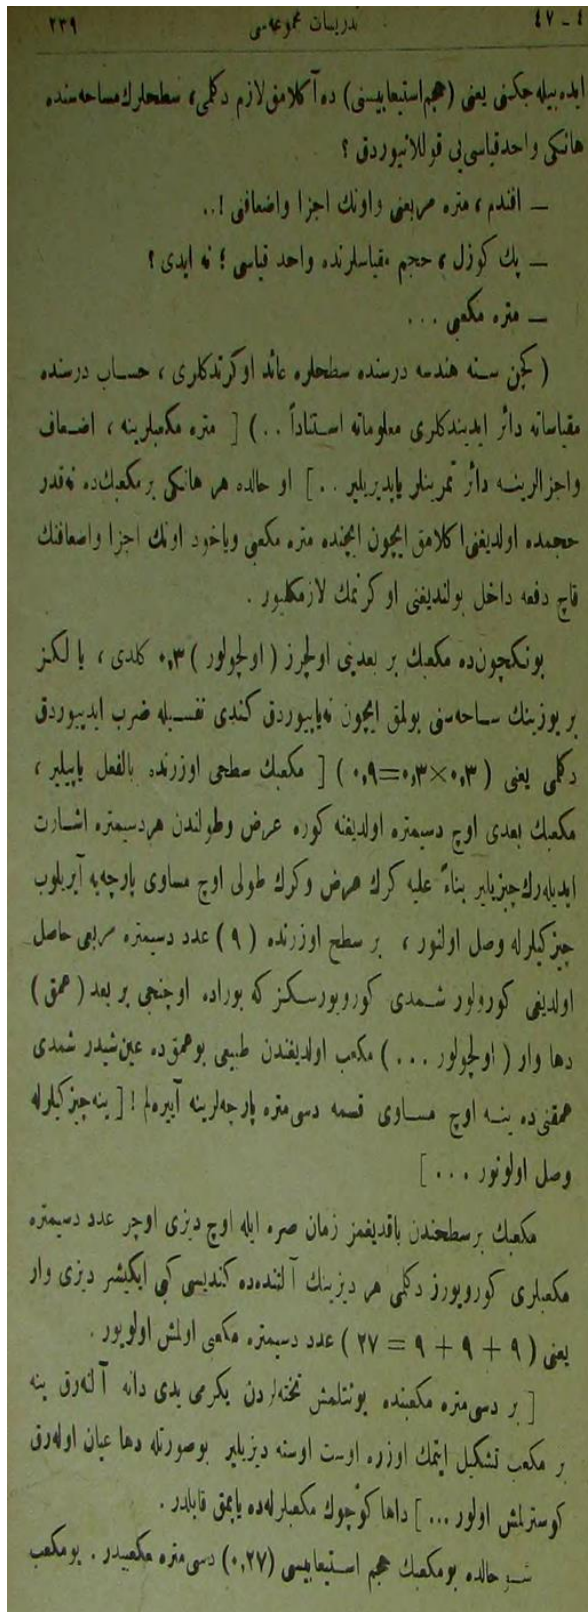 ٤ - ٤٧ تدریسات مجموعه‌سی ٢٣٩
ایده‌بیله‌جكنی یعنی (حجم استیعابیسنی) ده آكلامق لازم دكلمی، سطحلرك مساحه‌سنده
هانكی واحد قیاسی‌یی قوللانیوردق ؟
ـ افندم ، متره مربعنی واونك اجزا واضعافنی !..
ـ پك كوزل ، حجم مقیاسلرنده واحد قیاسی ؛ نه ایدی ؟
ـ متره مكعبی ...
( كچن سنه هندسه درسنده سطحلره عائد اوكرندكلری ، حساب درسنده
مقیاساته دائر ایدیندكلری معلوماته استناداً ..) [ متره مكعبلرینه ، اضعاف
واجزالرینه دائر تمرینلر یاپدیریلیر ..] او حالده هر هانكی بر مكعبك‌ده نه‌قدر
حجمده اولدیغنی اكلامق ایچون ایچنده متره مكعبی ویاخود اونك اجزا واضعافنك
قاچ دفعه داخل بولندیغنی اوكرنمك لازمكلیور .
بونكچون‌ده مكعبك بر بعدینی اولچرز ( اولچولور ) ٠,٣ كلدی ، یالكز
بر یوزینك ساحه‌سنی بولمق ایچون نه‌یاپیوردق كندی نفسیله ضرب ایدیوردق
دكلمی یعنی ( ٠,٣×٠,٣=٠,٩ ) [ مكعبك سطحی اوزرنده بالفعل یاپیلیر ،
مكعبك بعدی اوچ دسیمتره اولدیغنه كوره عرض وطولندن هردسیمتره اشارت
ایدیله‌رك‌چیزیلیر بناءً علیه كرك عرض وكرك طولی اوچ مساوی پارچه‌یه آیریلوب
چیزكیلرله وصل اولنور ، بر سطح اوزرنده ( ٩ ) عدد دسیمتره مربعی حاصل
اولدیغی كورولور شمدی كورویورسكز كه بوراده اوچنجی بر بعد ( عمق )
دها وار ( اولچولور ... ) مكعب اولدیغندن طبیعی بوعمق‌ده عین‌شیدر شمدی
عمقنی‌ده ینه اوچ مساوی قسمه دسی‌متره پارچه‌لرینه آییره‌لم ! [ ینه‌چیزكیلرله
وصل اولونور ... ]
مكعبك برسطحندن باقدیغمز زمان صره ایله اوچ دیزی اوچر عدد دسیمتره
مكعبلری كورویورز دكلمی هر دیزینك آلتنده‌ده كندیسی كبی ایكیشر دیزی وار
یعنی ( ٩ + ٩ + ٩ = ٢٧ ) عدد دسیمتره مكعبی اولمش اولویور .
[ بر دسی‌متره مكعبنده یونتلمش تخته‌لردن یكرمی یدی دانه آلنه‌رق ینه
بر مكعب تشكیل ایتمك اوزره اوست اوسته دیزیلیر بوصورتله دها عیان اوله‌رق
كوسترلمش اولور ... ] داها كوچوك مكعبلرله‌ده یاپمق قابلدر .
شو حالده بومكعبك حجم استیعابیسی (٠,٢٧) دسی‌متره مكعبیدر . بومكعب